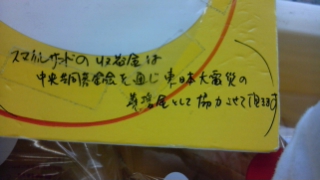 スマイルサンドの収益金は
中央共同募金会を通じ東日本大震災の
義援金として協力させて頂きます